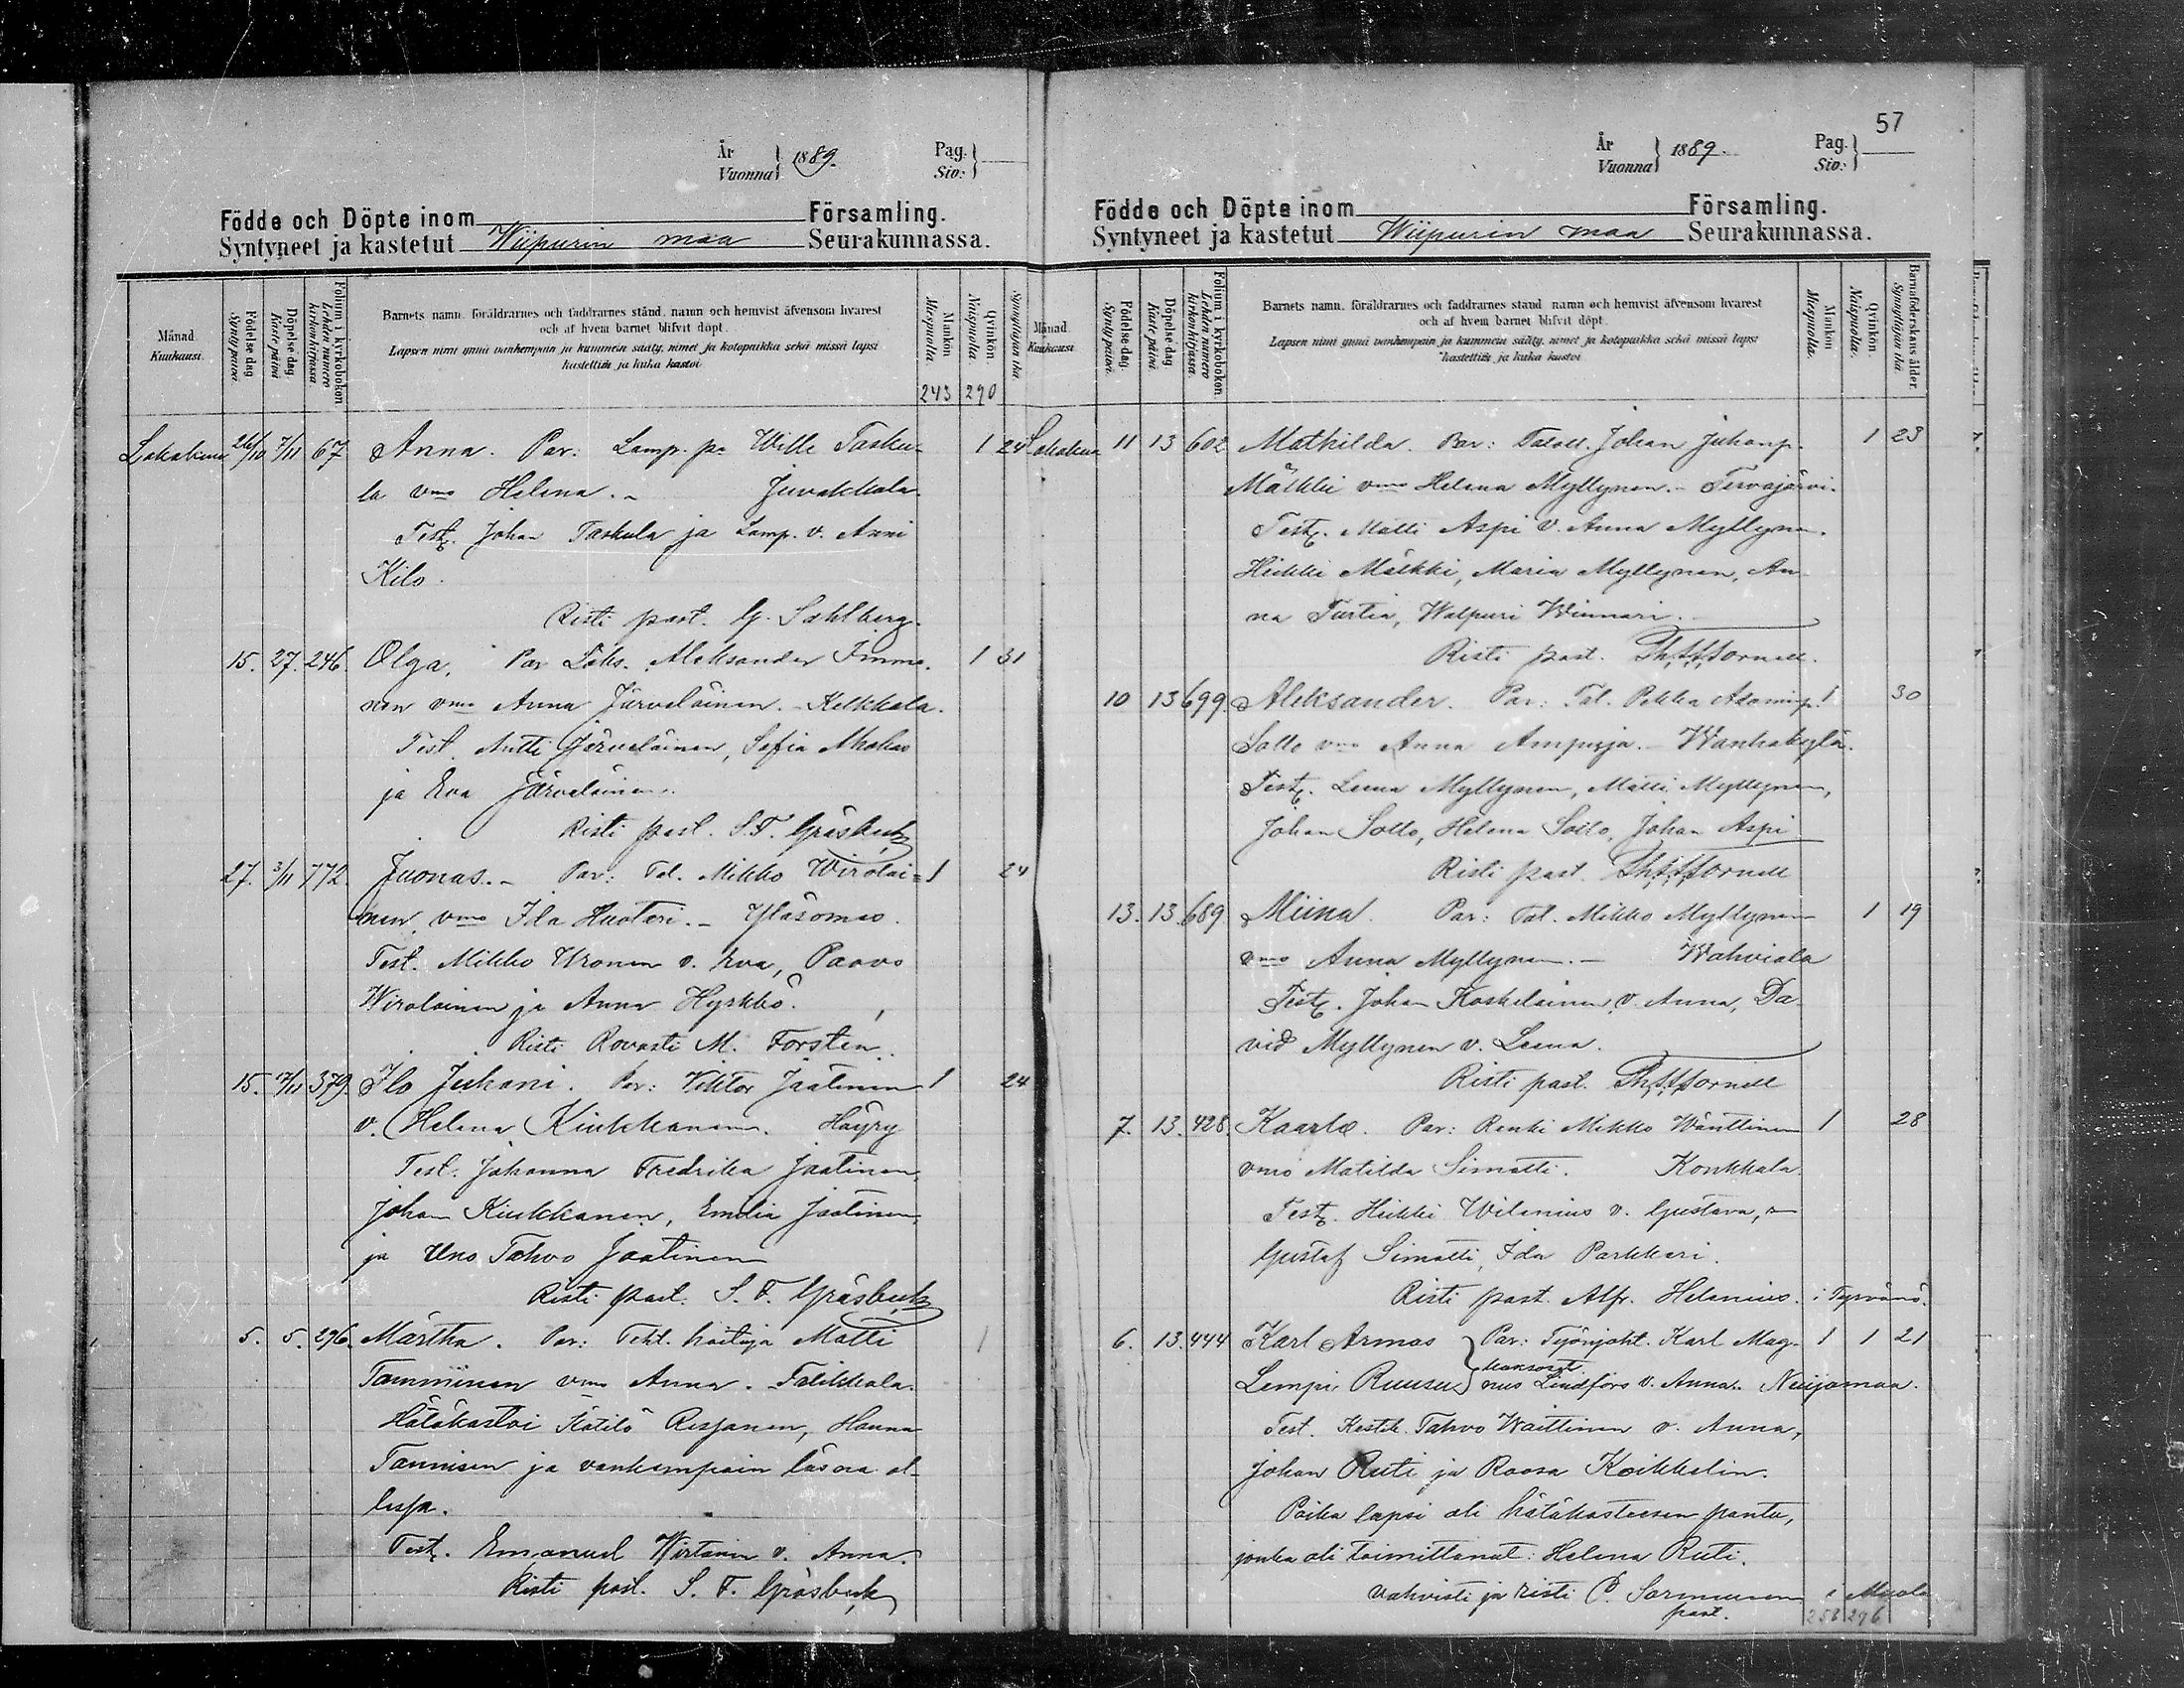 År
Vuonna 1889.
Pag.
Siv:
Födde och Döpte inom Församling.
Syntyneet ja kastetut Wiipurin maa Seurakunnassa.
Månad.
Kuukausi.
Födelse dag
Syntypäivä.
Döpelse dag
Kaste päivä
Folium i kyrkoboken
Lehden numero kirkonkirjassa.
Barnets namn, föräldrarnes och faddrarnes stånd, namn och hemvist äfvensom hvarest
och af hvem barnet blifvit döpt.
Lapsen nimi ynnä vanhempain ja kummein sääty, nimet ja kotopaikka sekä missä lapsi
kastettiin ja kuka kastoi.
Mankön
Miespuolta.
Qvinkön.
Naispuolta.
Synnyttäjän ikä.
243 290
Lokakuu 26/10 7/11 67 Anna. Par: Lamp. po Wille Tasku- 1 24
la vmo Helena. - Juvakkala.
Test. Johan Taskula ja Lamp. v. Anni
Kilo.
Risti past. G. Sahlberg.
15. 27. 246. Olga. Par Loks. Aleksander Immo- 1 31
nen vmo Anna Järveläinen. - Kelkkala.
Test. Antti Järveläinen, Sofia Ahokas
ja Eva Järveläinen.
Risti past. S. F. Gräsbeck
27. 3/11 772. Juonas. - Par: Tal. Mikko Wirolai= 1 24
nen vmo Ida Huoteri. - Yläsomee.
Test. Mikko Uronen v. Eva, Paavo
Wirolainen ja Anna Hyrkkö.
Risti Rovasti M. Forsten.
15. 17/11 379. Ilo Juhani. Par: Viktor Jaatinen 1 24
v. Helena Kiukkanen. Häyry
Test. Johanna Fredrika Jaatinen,
Johan Kiukkanen, Emilia Jaatinen,
ja Uno Tahvo Jaatinen
Risti past. S. F. Gräsbeck
5. 5. 296. Märtha. Par: Teht. hoitaja Matti 1
Tamminen vmo Anna. Talikkala.
Hätäkastoi Kätilö Resjanen, Hanna
Tannisen ja vanhempain läsnä ol-
lessa.
Test. Emanuel Wirtanen v. Anna.
Risti past. S. F. Gräsbeck
57
År
Vuonna 1889.
Pag.
Siv:
Födde och Döpte inom Församling.
Syntyneet ja kastetut Wiipurin maa Seurakunnassa.
Månad.
Kuukausi.
Födelse dag
Syntypäivä.
Döpelse dag
Kaste päivä.
Folium i kyrkoboken
Lehden numero kirkonkirjassa.
Barnets namn, föräldrarnes och faddrarnes stånd namn och hemvist äfvensom hvarest
och af hvem barnet blifvit döpt.
Lapsen nimi ynnä vanhempain ja kummein sääty, nimet ja kotopaikka sekä missä lapsi
kastettiin ja kuka kastoi
Mankön
Miespuolta.
Qvinkön.
Naispuolta.
Barnaföderskans ålder.
Synnyttäjän ikä.
Lokakuu 11 13 602 Mathilda. Par: Johan Juhanp. 1 23
Mälkki vmo Helena Myllynen. - Tervajärvi.
Test. Matti Aspi v. Anna Myllynen.
Heikki Mälkki, Maria Myllynen, An-
na Turtia, Walpuri Winnari.
Risti past.
10 13 699. Aleksander. Par: Tal. Pekka Adaminp. 1 30
Sollo vmo Anna Ampuja. - Wanhakylä.
Test. Leena Myllynen, Matti Myllynen,
Johan Sollo, Helena Sollo, Johan Aspi
Risti past.
13. 13. 689. Miina. Par: Tal. Mikko Myllynen 1 19
vmo Anna Myllynen. - Wahviala
Test. Johan Koskelainen v. Anna, Da-
vid Myllynen v. Leena.
Risti past.
7. 13. 428. Kaarlo. Par: Renki Mikko Wänttinen 1 28
vmo Matilda Simatti. Konkkala.
Test. Heikki Wilenius v. Gustava,
Gustaf Simatti, Ida Parkkari.
Risti past. Alf. Helenius. i Tyrväntö.
6. 13. 444 Karl Armas } Par: Työnjoht. Karl Mag- 1 1 21
kaksoset
Lempi Ruusu } nus Lindfors v. Anna. Nuijamaa.
Test. Kestik. Tahvo Waittinen v. Anna,
Johan Ruti ja Roosa Koikkelin.
Poika lapsi oli hätäkasteesen pantu,
jonka oli toimittanut: Helena Ruti.
Vahvisti ja risti P. Sormunen i Muola
past.
258 296